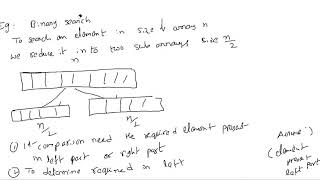 Eg: Binary search
To search an element in size of array n
we reduce it into two sub arrays size n/2
n
n/2 n/2
① 1st comparison need the required element present
in left part or right part
② To determine required in left
Assume:
(element
present
left part